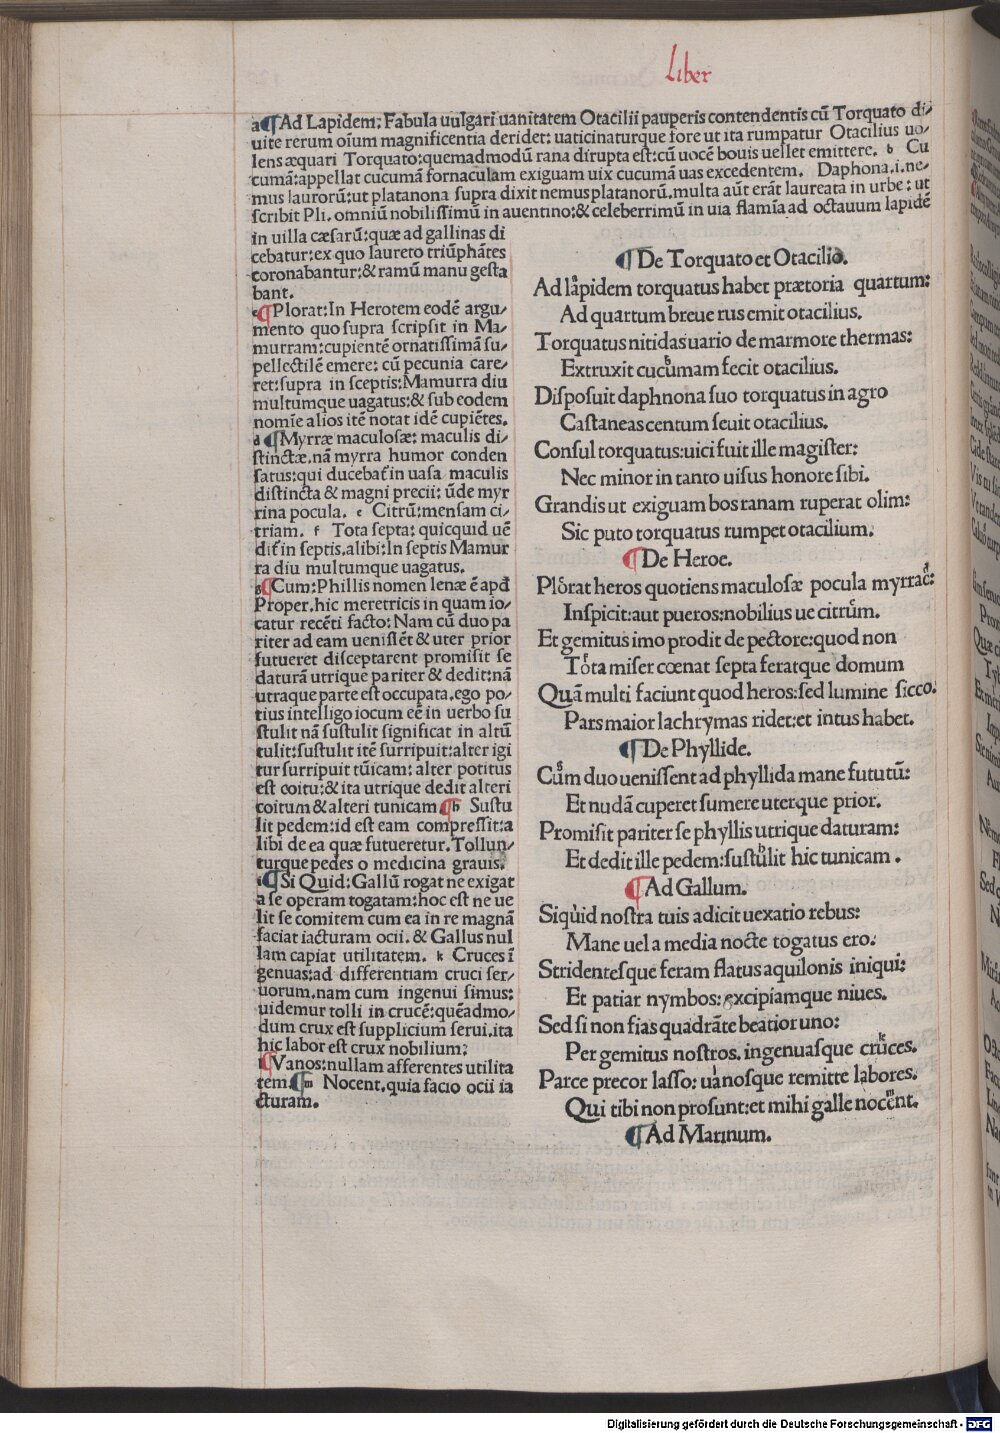 Liber
a¶Ad Lapidem: Fabula uulgari uanitatem Otacilii pauperis contendentis cū Torquato di/
uite rerum oīum magnificentia deridet: uaticinaturque fore ut ita rumpatur Otacilius uo/
lens æquari Torquato: quemadmodū rana dirupta est: cū uocē bouis uellet emittere. b Cu
cumā: appellat cucumā fornaculam exiguam uix cucumā uas excedentem. Daphona.i.ne/
mus laurorū: ut platanona supra dixit nemus platanorū. multa aūt erāt laureata in urbe: ut
scribit Pli. omniū nobilissimū in auentino: & celeberrimū in uia flamīa ad octauum lapidē
in uilla cæsarū: quæ ad gallinas di
cebatur: ex quo laureto triūphātes
coronabantur: & ramū manu gesta
bant.
c¶Plorat: In Herotem eodē argu/
mento quo supra scripsit in Ma/
murram: cupientē ornatissimā su/
pellectilē emere: cū pecunia care/
ret: supra in sceptis: Mamurra diu
multumque uagatus: & sub eodem
nomīe alios itē notat idē cupiētes.
d¶Myrræ maculosæ: maculis di/
stinctæ. nā myrra humor conden
satus: qui ducebat̄ in uasa maculis
distincta & magni precii: ūde myr
rina pocula. e Citrū: mensam ci/
triam. f Tota septa: quicquid uē
dit̄ in septis. alibi: In septis Mamur
ra diu multumque uagatus.
g¶Cum: Phillis nomen lenæ ē apd̄
Proper. hic meretricis in quam io/
catur recēti facto: Nam cū duo pa
riter ad eam uenissēt & uter prior
futueret disceptarent promisit se
daturā utrique pariter & dedit: nā
utraque parte est occupata. ego po/
tius intelligo iocum eē in uerbo su
stulit nā sustulit significat in altū
tulit: sustulit itē surripuit: alter igi
tur surripuit tūicam: alter potitus
est coitu: & ita utrique dedit alteri
coitum & alteri tunicam ¶h Sustu
lit pedem: id est eam compressit: a
libi de ea quæ futueretur. Tollun/
turque pedes o medicina grauis.
i¶Si Quid: Gallū rogat ne exigat
a se operam togatam: hoc est ne ue
lit se comitem cum ea in re magnā
faciat iacturam ocii. & Gallus nul
lam capiat utilitatem. k Cruces ī
genuas: ad differentiam cruci ser/
uorum. nam cum ingenui simus:
uidemur tolli in crucē: quēadmo/
dum crux est supplicium serui. ita
hic labor est crux nobilium:
l¶Vanos: nullam afferentes utilita
tem. ¶m Nocent. quia facio ocii ia
cturam.
¶De Torquato et Otacilio.
Ad lapidem torquatus habet prætoria quartum:
Ad quartum breue rus emit otacilius.
Torquatus nitidas uario de marmore thermas:
Extruxit cucumam fecit otacilius.
Disposuit daphnona suo torquatus in agro
Castaneas centum seuit otacilius.
Consul torquatus: uici fuit ille magister:
Nec minor in tanto uisus honore sibi.
Grandis ut exiguam bos ranam ruperat olim:
Sic puto torquatus rumpet otacilium.
¶De Heroe.
Plorat heros quotiens maculosæ pocula myrrae:
Inspicit: aut pueros: nobilius ue citrum.
Et gemitus imo prodit de pectore: quod non
Tota miser coenat septa feratque domum
Quā multi faciunt quod heros: sed lumine sicco.
Pars maior lachrymas ridet: et intus habet.
¶De Phyllide.
Cum duo uenissent ad phyllida mane fututū:
Et nudā cuperet sumere uterque prior.
Promisit pariter se phyllis utrique daturam:
Et dedit ille pedem: sustulit hic tunicam.
¶Ad Gallum.
Siquid nostra tuis adicit uexatio rebus:
Mane uel a media nocte togatus ero.
Stridentesque feram flatus aquilonis iniqui:
Et patiar nymbos: excipiamque niues.
Sed si non fias quadrāte beatior uno:
Per gemitus nostros. ingenuasque cruces.
Parce precor lasso: uanosque remitte labores.
Qui tibi non prosunt: et mihi galle nocent.
¶Ad Marinum.
Digitalisierung gefördert durch die Deutsche Forschungsgemeinschaft - DFG